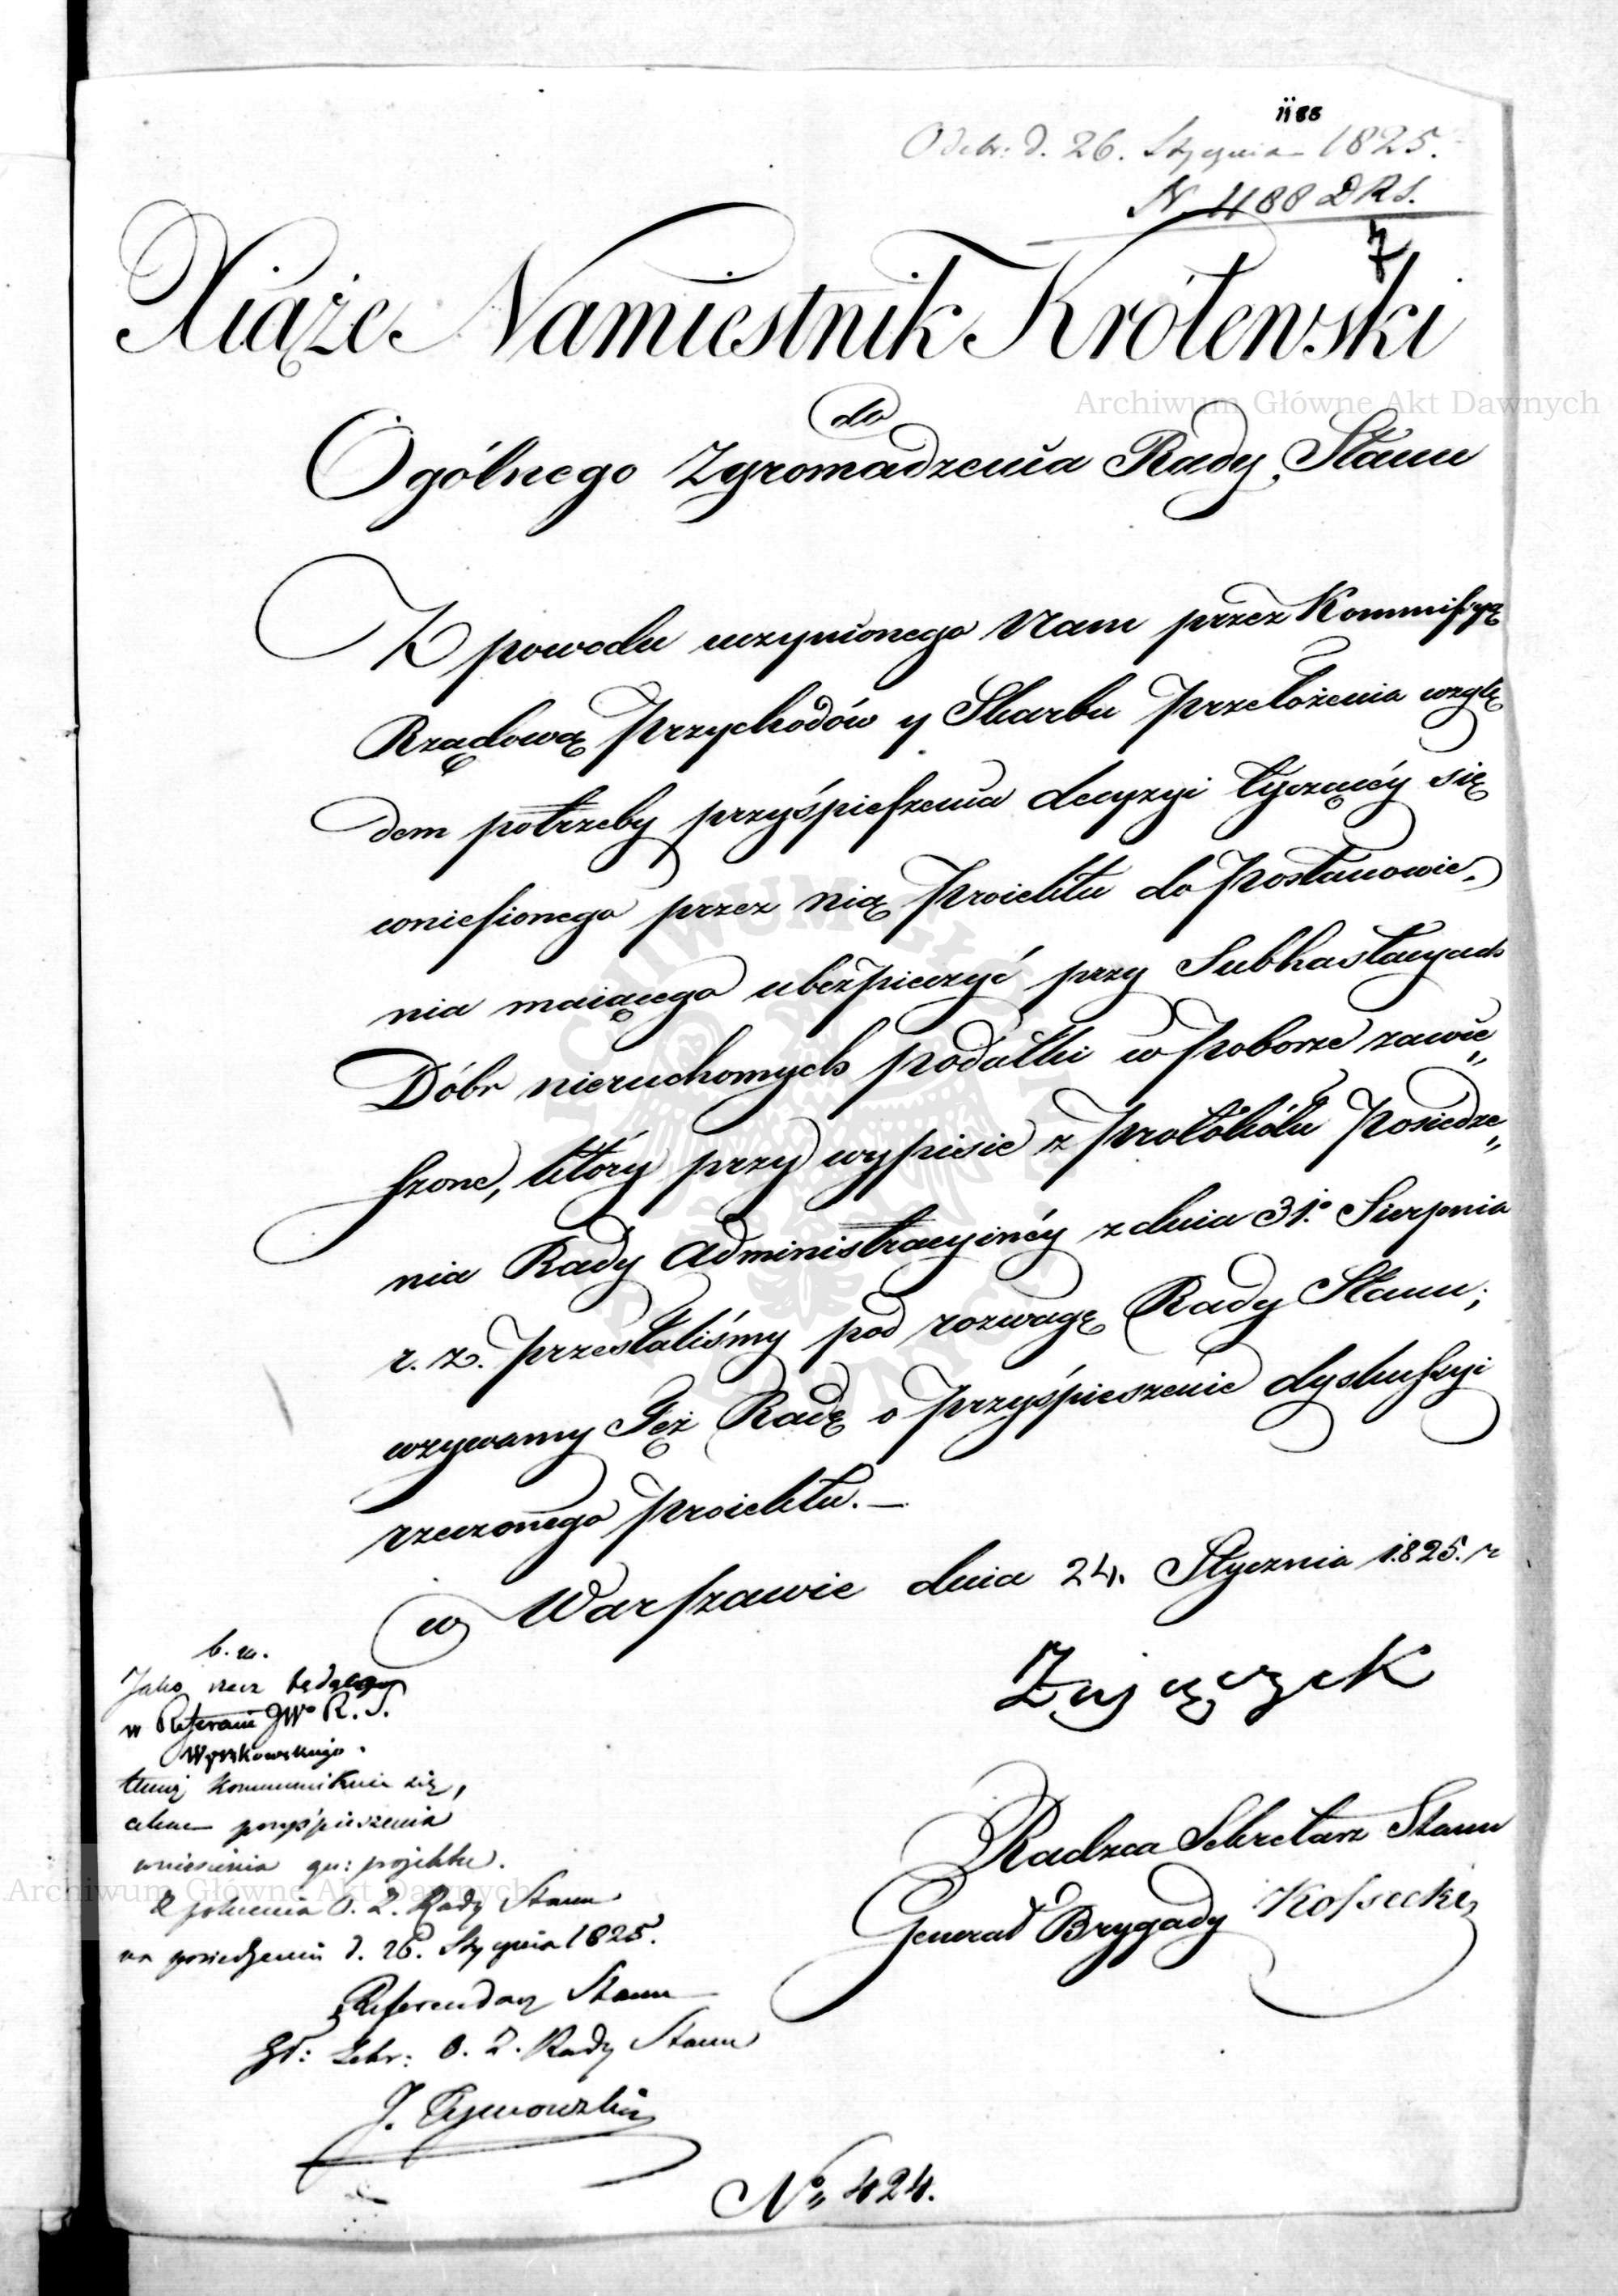 1188
Odebr: d. 26. Stycznia 1825.
N. 488 D R S.
7
Xiąże Namiestnik Królewski
do
Ogólnego Zgromadzenia Rady Stanu
Z powodu uczynionego Nam przez Kommissyą
Rządową Przychodów y Skarbu Przełożenia wzglę
dem potrzeby przyśpieszenia decyzyi tyczącéy się
wniesionego przez nią Proiektu do Postanowie-
nia maiącego ubezpieczyć przy Subhastacyach
Dóbr nieruchomych podatki w Poborze zawie„
szone, który przy wypisie z Protokółu Posiedze„
nia Rady Administracyinéy z dnia 31º Sierpnia
r. z. Przesłaliśmy pod rozwagę Rady Stanu;
wzywamy Też Radę o Przyśpieszenie dyskussyi
rzeczonego Proiektu. —
w Warszawie dnia 24. Stycznia 1825. r
Zajączek
Radzca Sekretarz Stanu
Generał Brygady Kossecki
b. m.
Jako rzecz będącego
w Referacie JWº R. S.
Wyczkowskiego.
temuż kommunikuie się,
celem przyśpieszenia
wniesienia qu: projektu.
Z polecenia O. Z. Rady Stanu
na posiedzeniu d. 26. Stycznia 1825.
Referendarz Stanu
Sekr: O. Z. Rady Stanu
J. Tymowski
Nº 424.
Archiwum Główne Akt Dawnych
Archiwum Główne Akt Dawnych